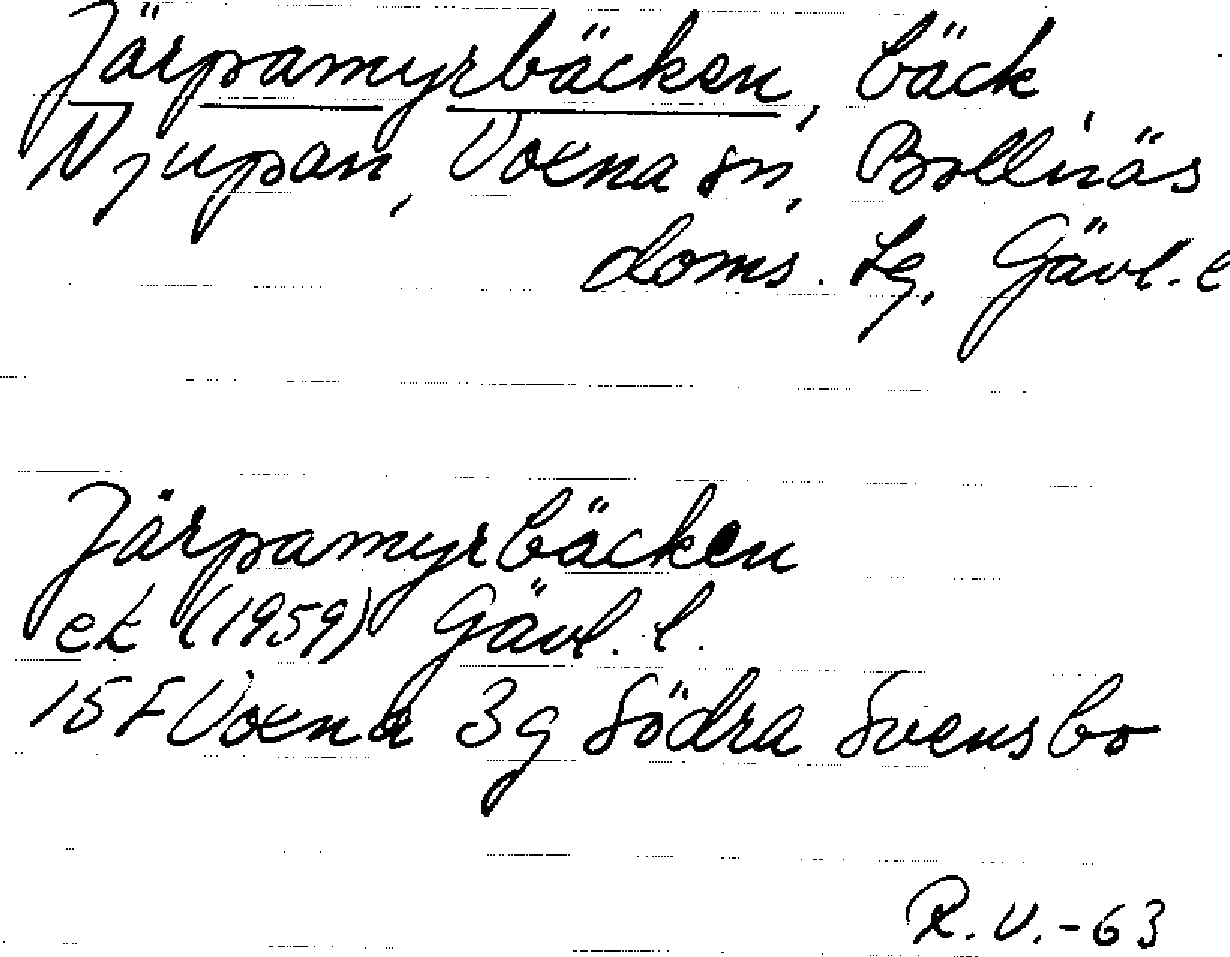 Järpamyrbäcken, bäck
Njupån, Voxna sn, Bollnäs
doms. lg, Gävl. l
Järpamyrbäcken
ek (1959) Gävl. l.
15F Voxna 3g Södra Svensbo
R.V.-63